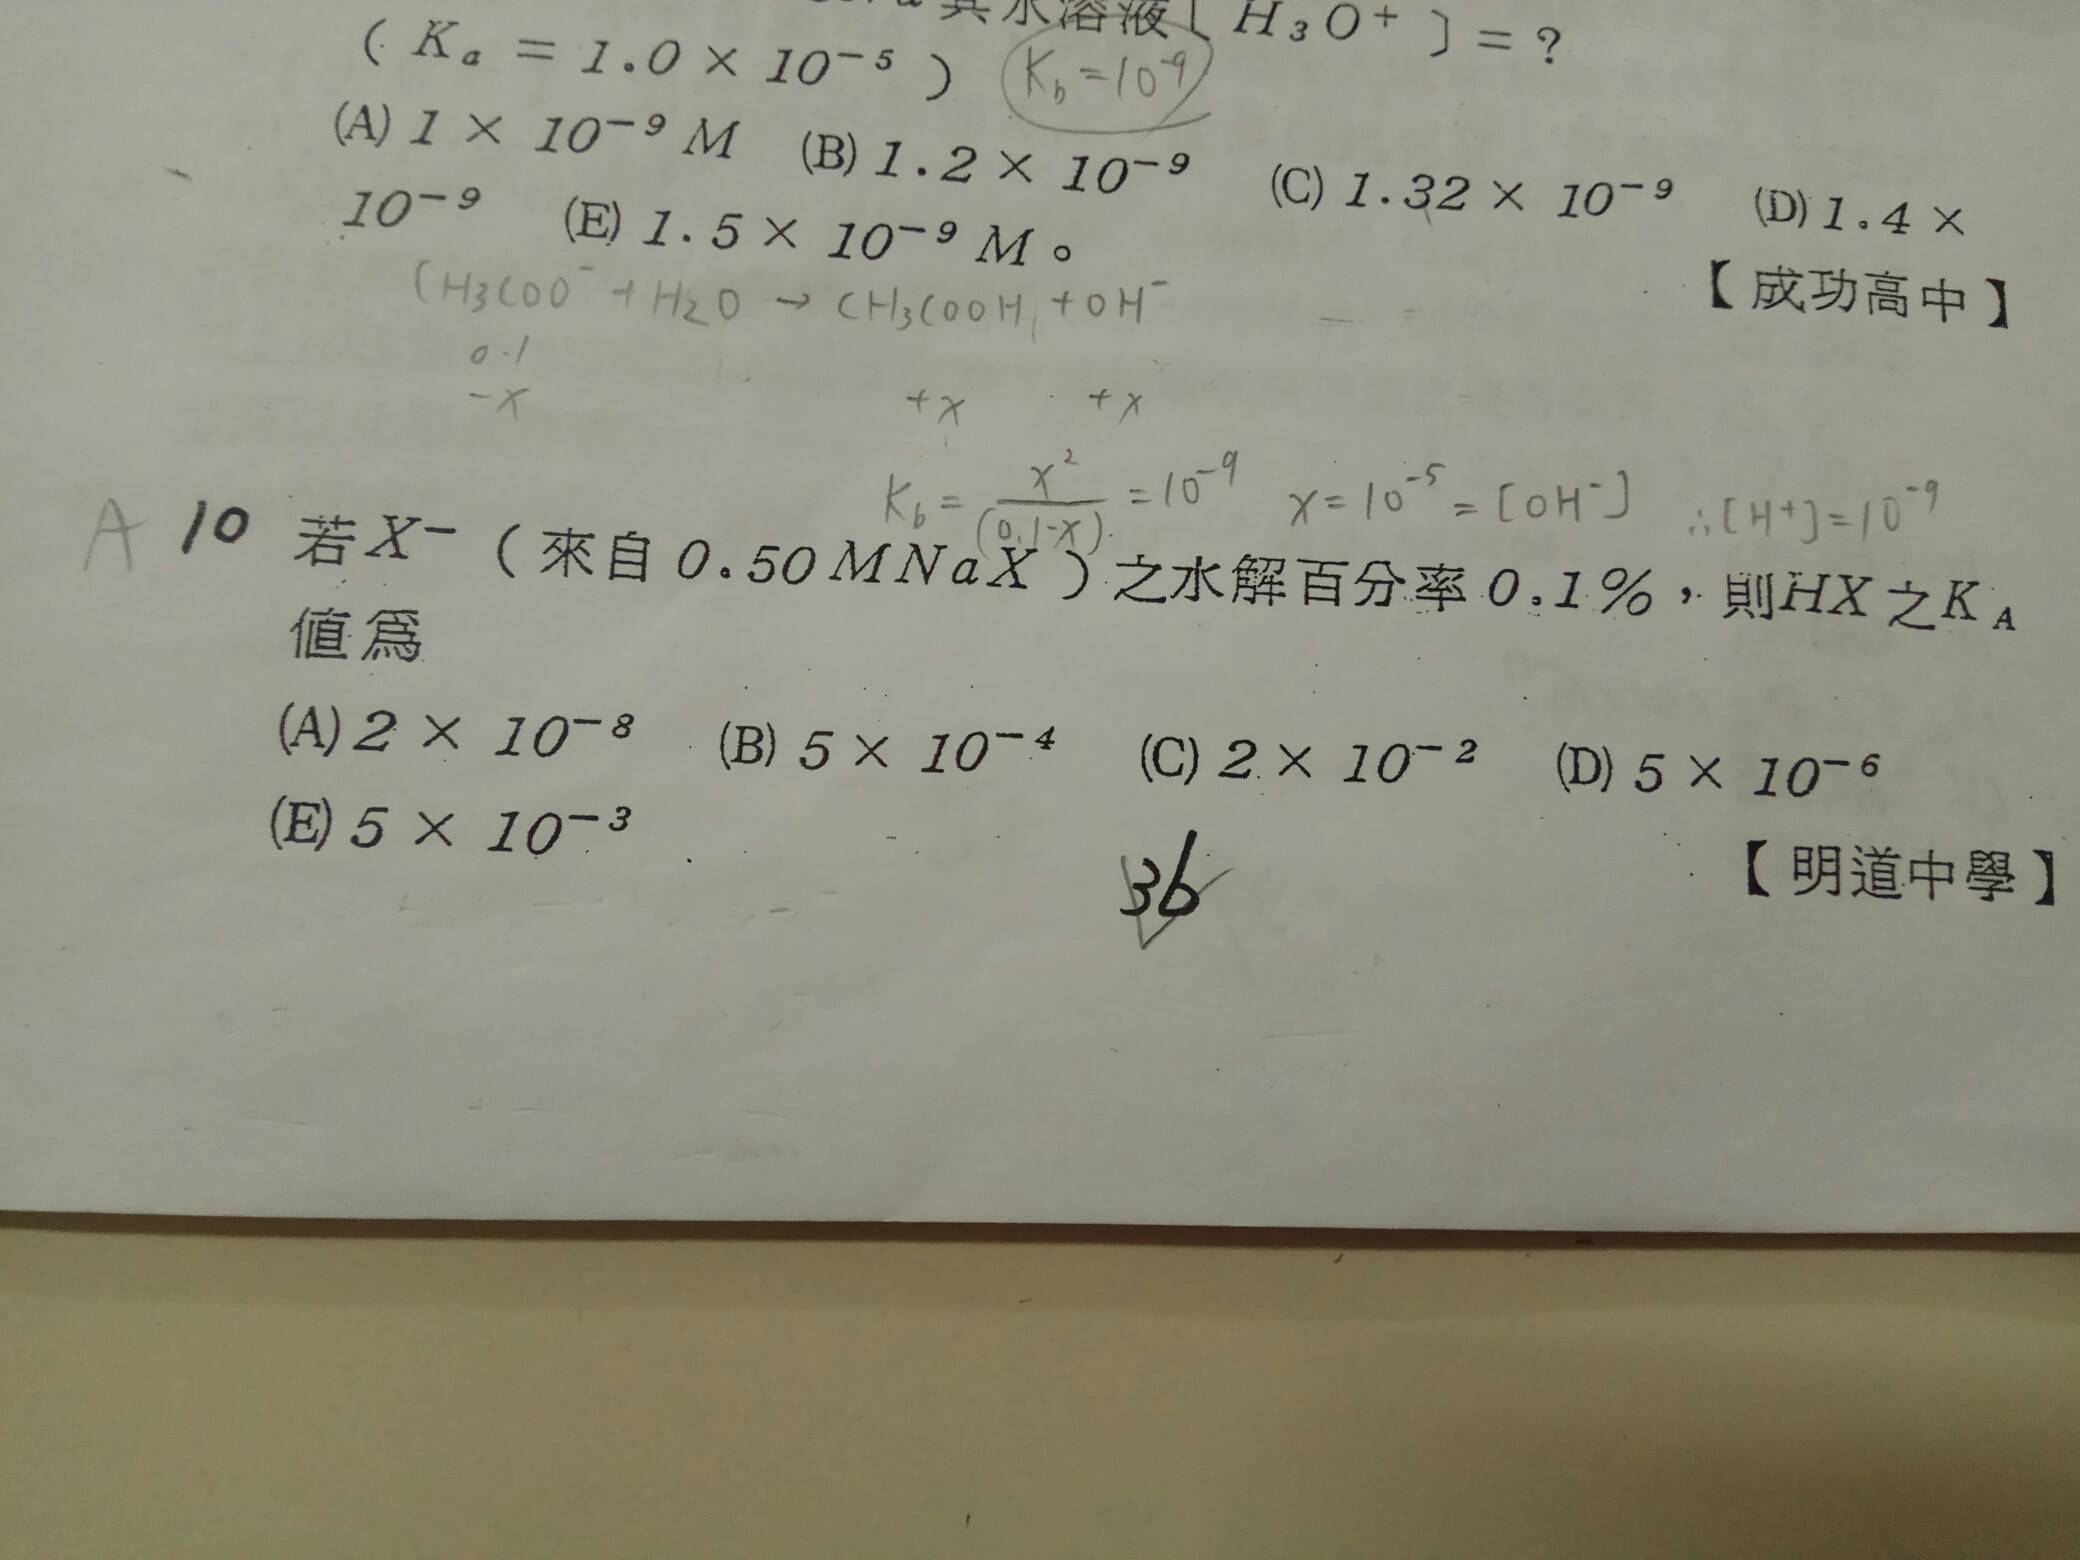 其水溶液〔H₃O⁺〕=?
(Kₐ = 1.0 × 10⁻⁵) K_b=10⁻⁹
(A) 1 × 10⁻⁹ M (B) 1.2 × 10⁻⁹ (C) 1.32 × 10⁻⁹ (D) 1.4 ×
10⁻⁹ (E) 1.5 × 10⁻⁹ M。
【成功高中】
CH₃COO⁻ + H₂O → CH₃COOH + OH⁻
0.1
-x +x +x
K_b = x²/(0.1-x) = 10⁻⁹ x = 10⁻⁵ = [OH⁻] ∴[H⁺]=10⁻⁹
A 10 若X⁻(來自0.50MNaX)之水解百分率0.1%,則HX之K_A
值為
(A) 2 × 10⁻⁸ (B) 5 × 10⁻⁴ (C) 2 × 10⁻² (D) 5 × 10⁻⁶
(E) 5 × 10⁻³
【明道中學】
36